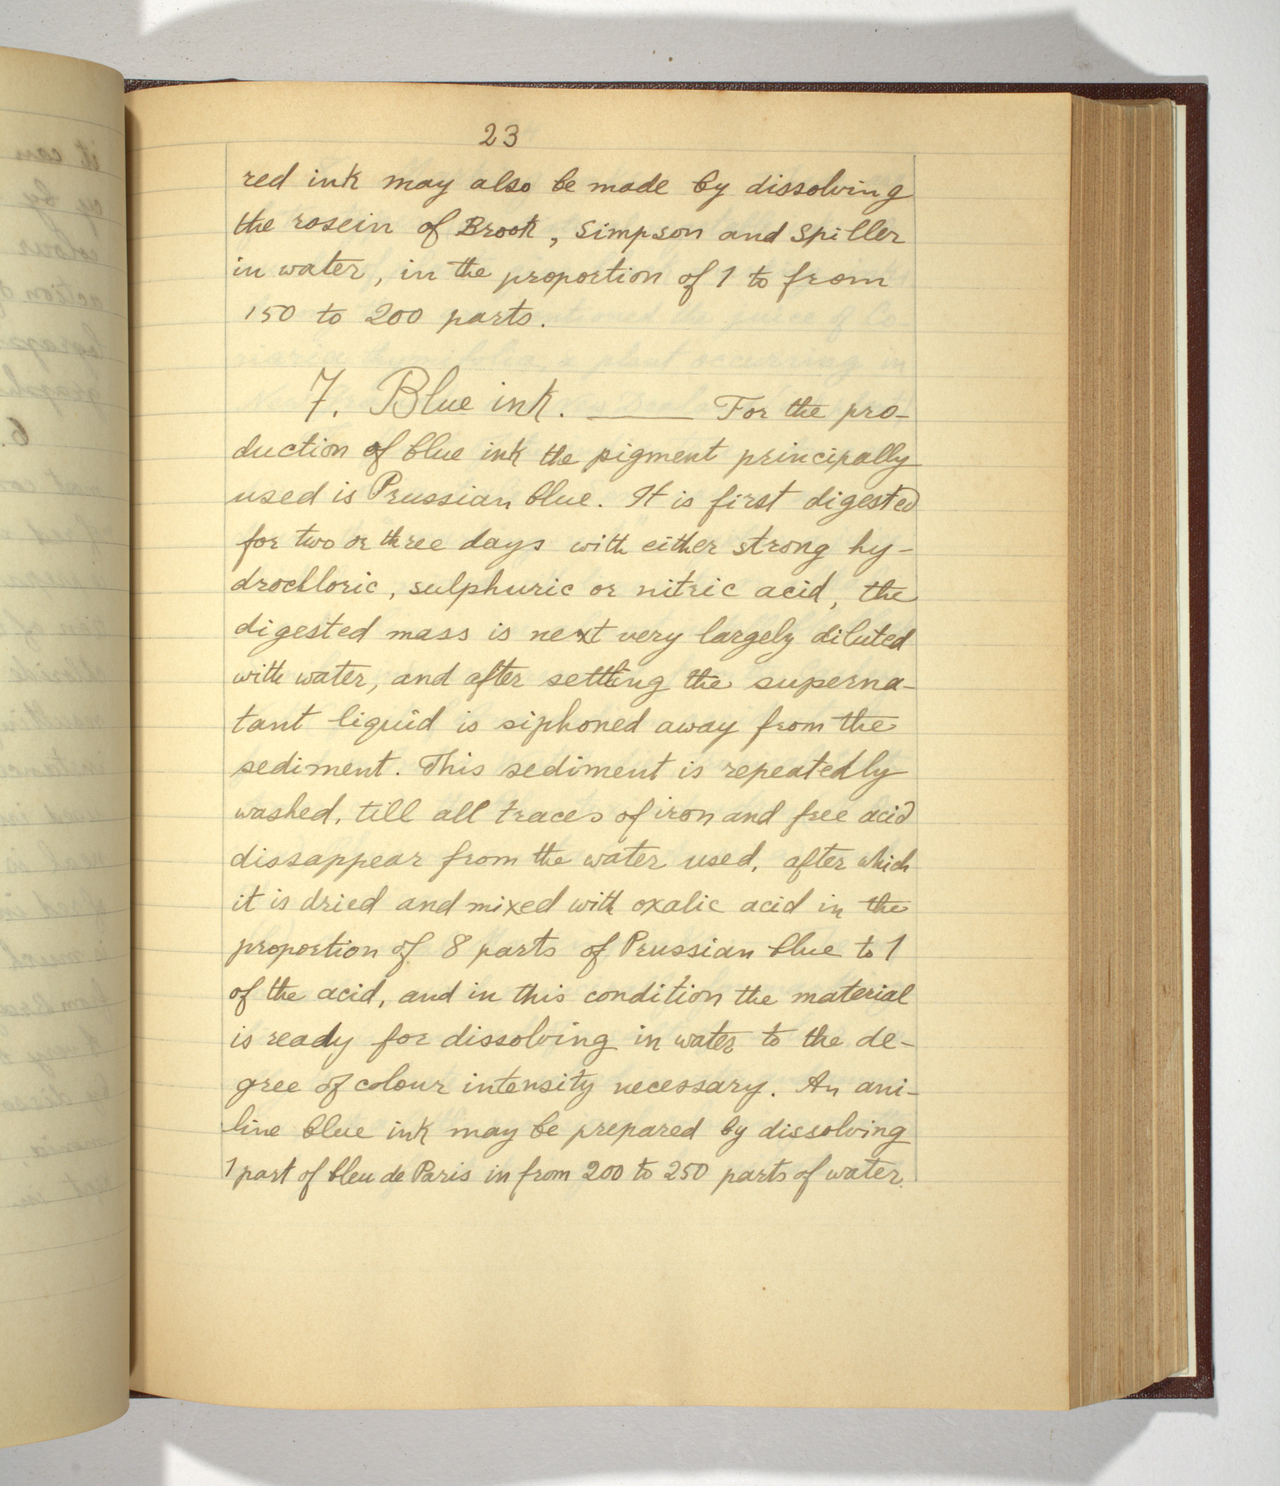 23
red ink may also be made by dissolving
the rosein of Brook, Simpson and Spiller
in water, in the proportion of 1 to from
150 to 200 parts.
7. Blue ink. ——— For the pro-
duction of blue ink the pigment principally
used is Prussian blue. It is first digested
for two or three days with either strong hy-
drochloric, sulphuric or nitric acid, the
digested mass is next very largely diluted
with water, and after settling the superna-
tant liquid is siphoned away from the
sediment. This sediment is repeatedly
washed, till all traces of iron and free acid
dissappear from the water used, after which
it is dried and mixed with oxalic acid in the
proportion of 8 parts of Prussian blue to 1
of the acid, and in this condition the material
is ready for dissolving in water to the de-
gree of colour intensity necessary. An ani-
line blue ink may be prepared by dissolving
1 part of bleu de Paris in from 200 to 250 parts of water.